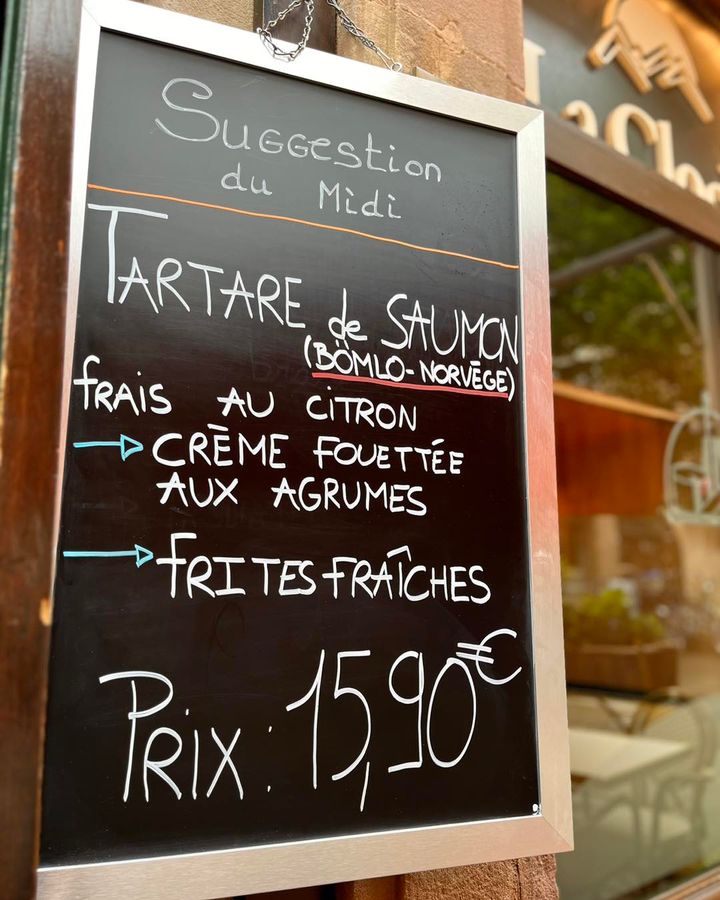 Suggestion
du Midi
TARTARE de SAUMON
(BÖMLO-NORVÈGE)
frais AU CITRON
→ CRÈME FOUETTÉE
AUX AGRUMES
→ FRITES FRAÎCHES
PRIX : 15,90€
La